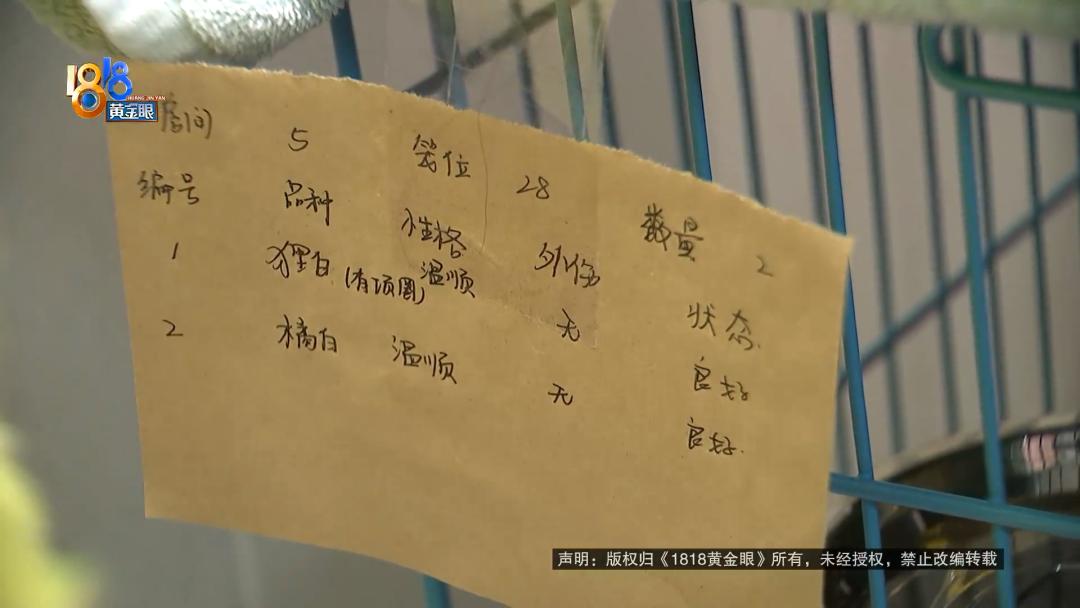 1818
HUANG JIN YAN
黄金眼
房间 5 笼位 28 数量 2
编号 品种 性格 外伤 状态
1 狸白(有项圈) 温顺 无 良好
2 橘白 温顺 无 良好
声明：版权归《1818黄金眼》所有，未经授权，禁止改编转载